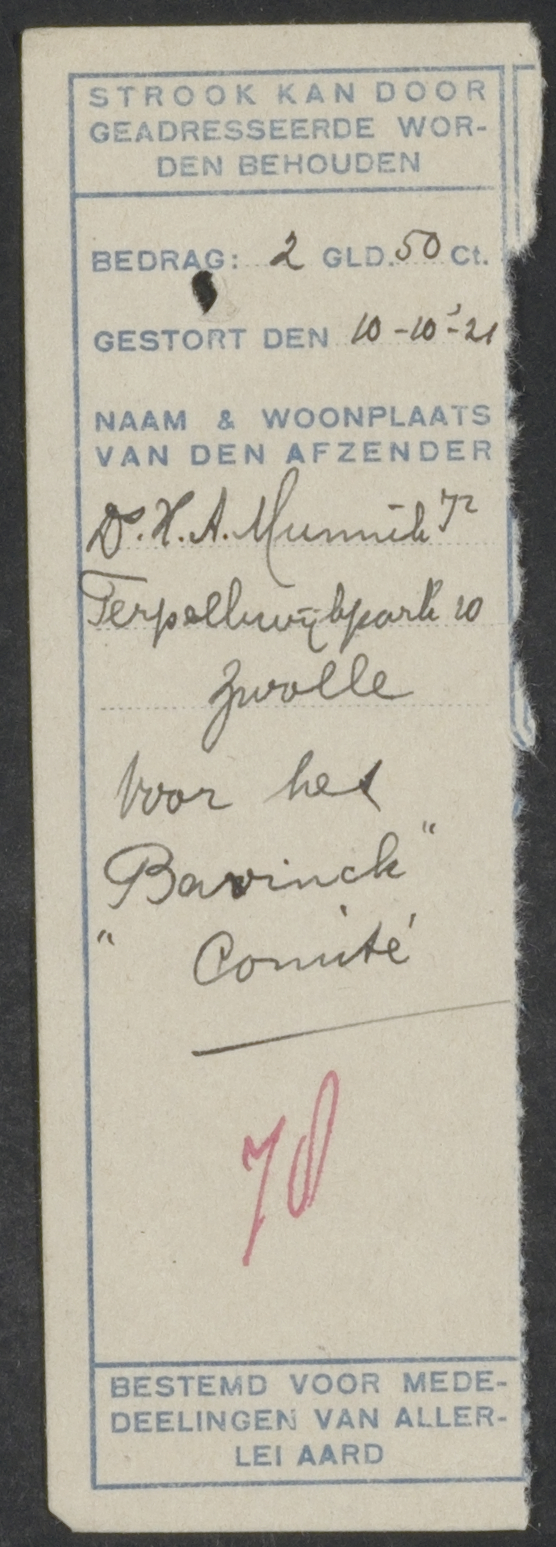 STROOK KAN DOOR
GEADRESSEERDE WOR-
DEN BEHOUDEN
BEDRAG: 2 GLD. 50 Ct.
GESTORT DEN 10-10-'21
NAAM & WOONPLAATS
VAN DEN AFZENDER
Dr. H. A. Munnik Jr
Terpelkwijkpark 10
Zwolle
Voor het
Bavinck"
" Comité
70
BESTEMD VOOR MEDE-
DEELINGEN VAN ALLER-
LEI AARD